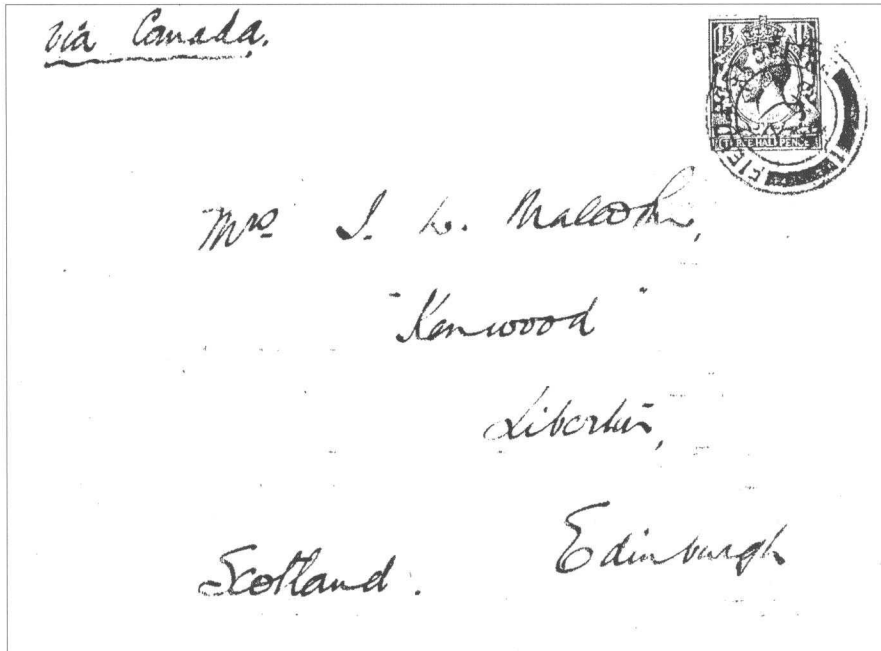 via Canada.
1½ 1½
THREE HALF PENCE
FIELD
Mrs. I. L. Malcolm,
"Kenwood"
Liberton,
Edinburgh
Scotland.